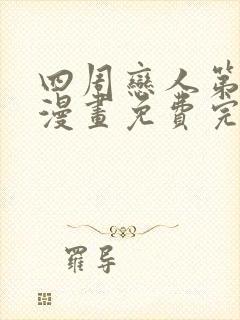 四周戀人第
漫畫免費完
羅导